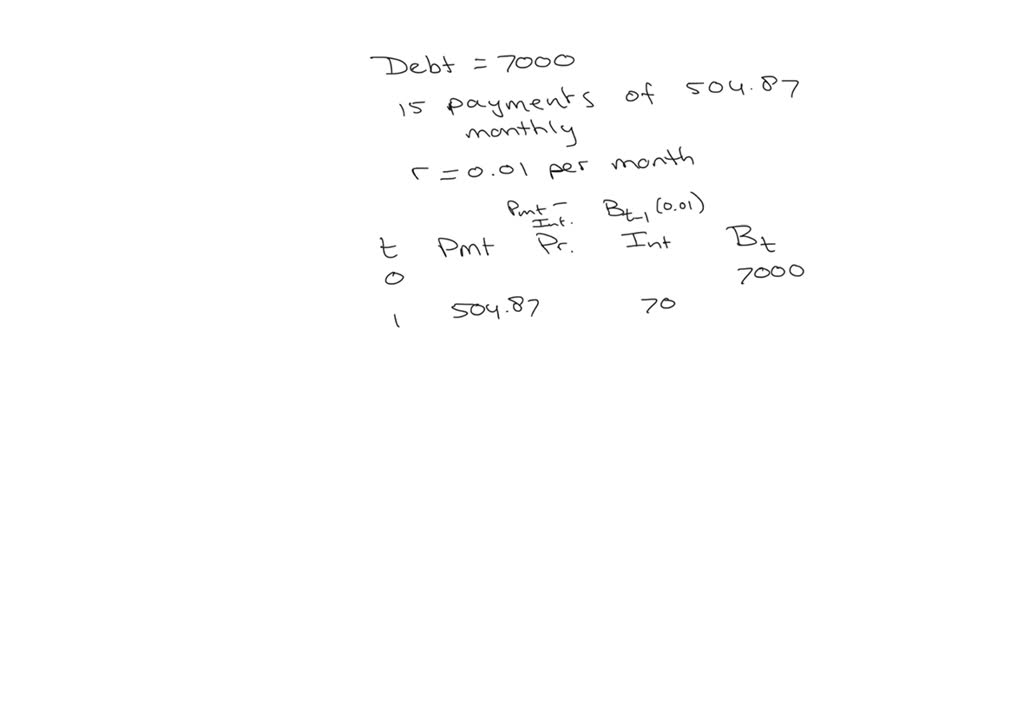 Debt = 7000
15 payments of 504.87
monthly
r = 0.01 per month
Pmt - Bt-1 (0.01)
Int.
t Pmt Pr. Int Bt
0 7000
1 504.87 70